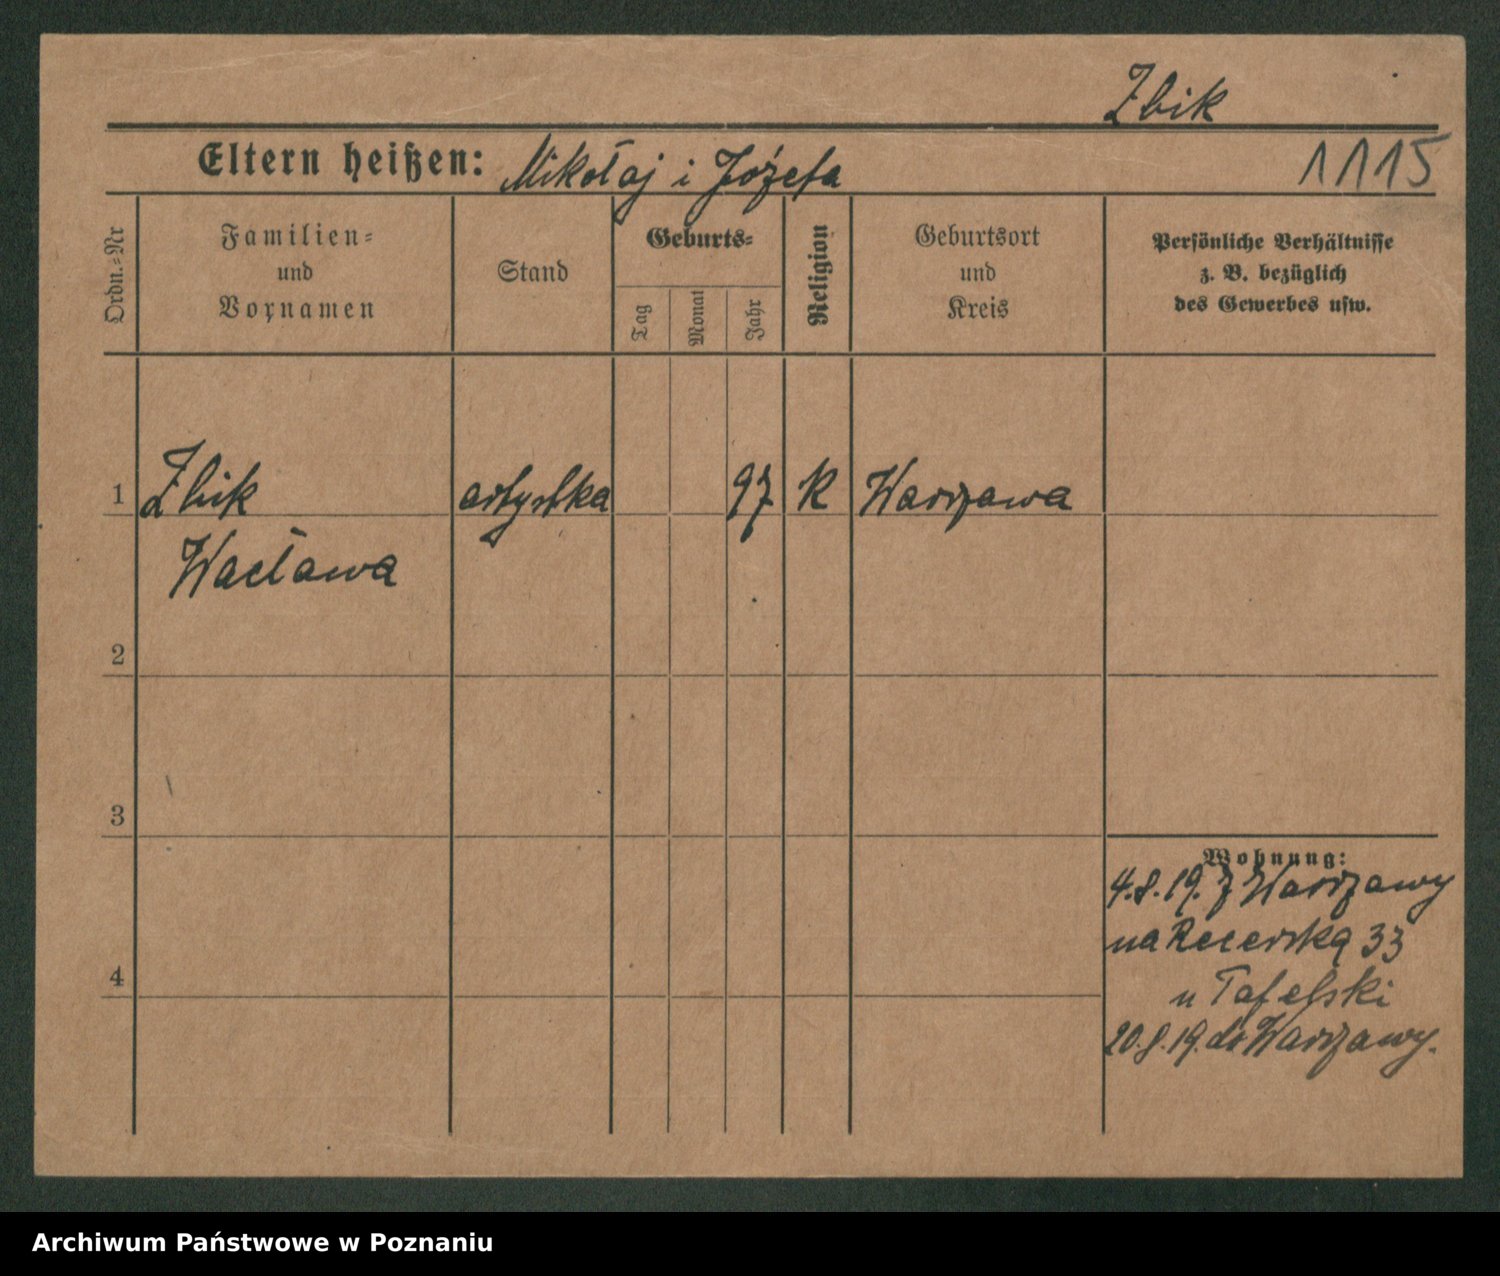 Zbik
Eltern heißen: Mikołaj i Józefa
1115
Ordn.=Nr
Familien=
und
Vornamen
Stand
Geburts=
Tag
Monat
Jahr
Religion
Geburtsort
und
Kreis
Persönliche Verhältnisse
z. B. bezüglich
des Gewerbes usw.
1 Zbik artystka 97 K Warszawa
Wacława
2
3
4
Wohnung:
4.8.19. z Warszawy
na 33
u
20.8.19. do Warszawy.
Archiwum Państwowe w Poznaniu